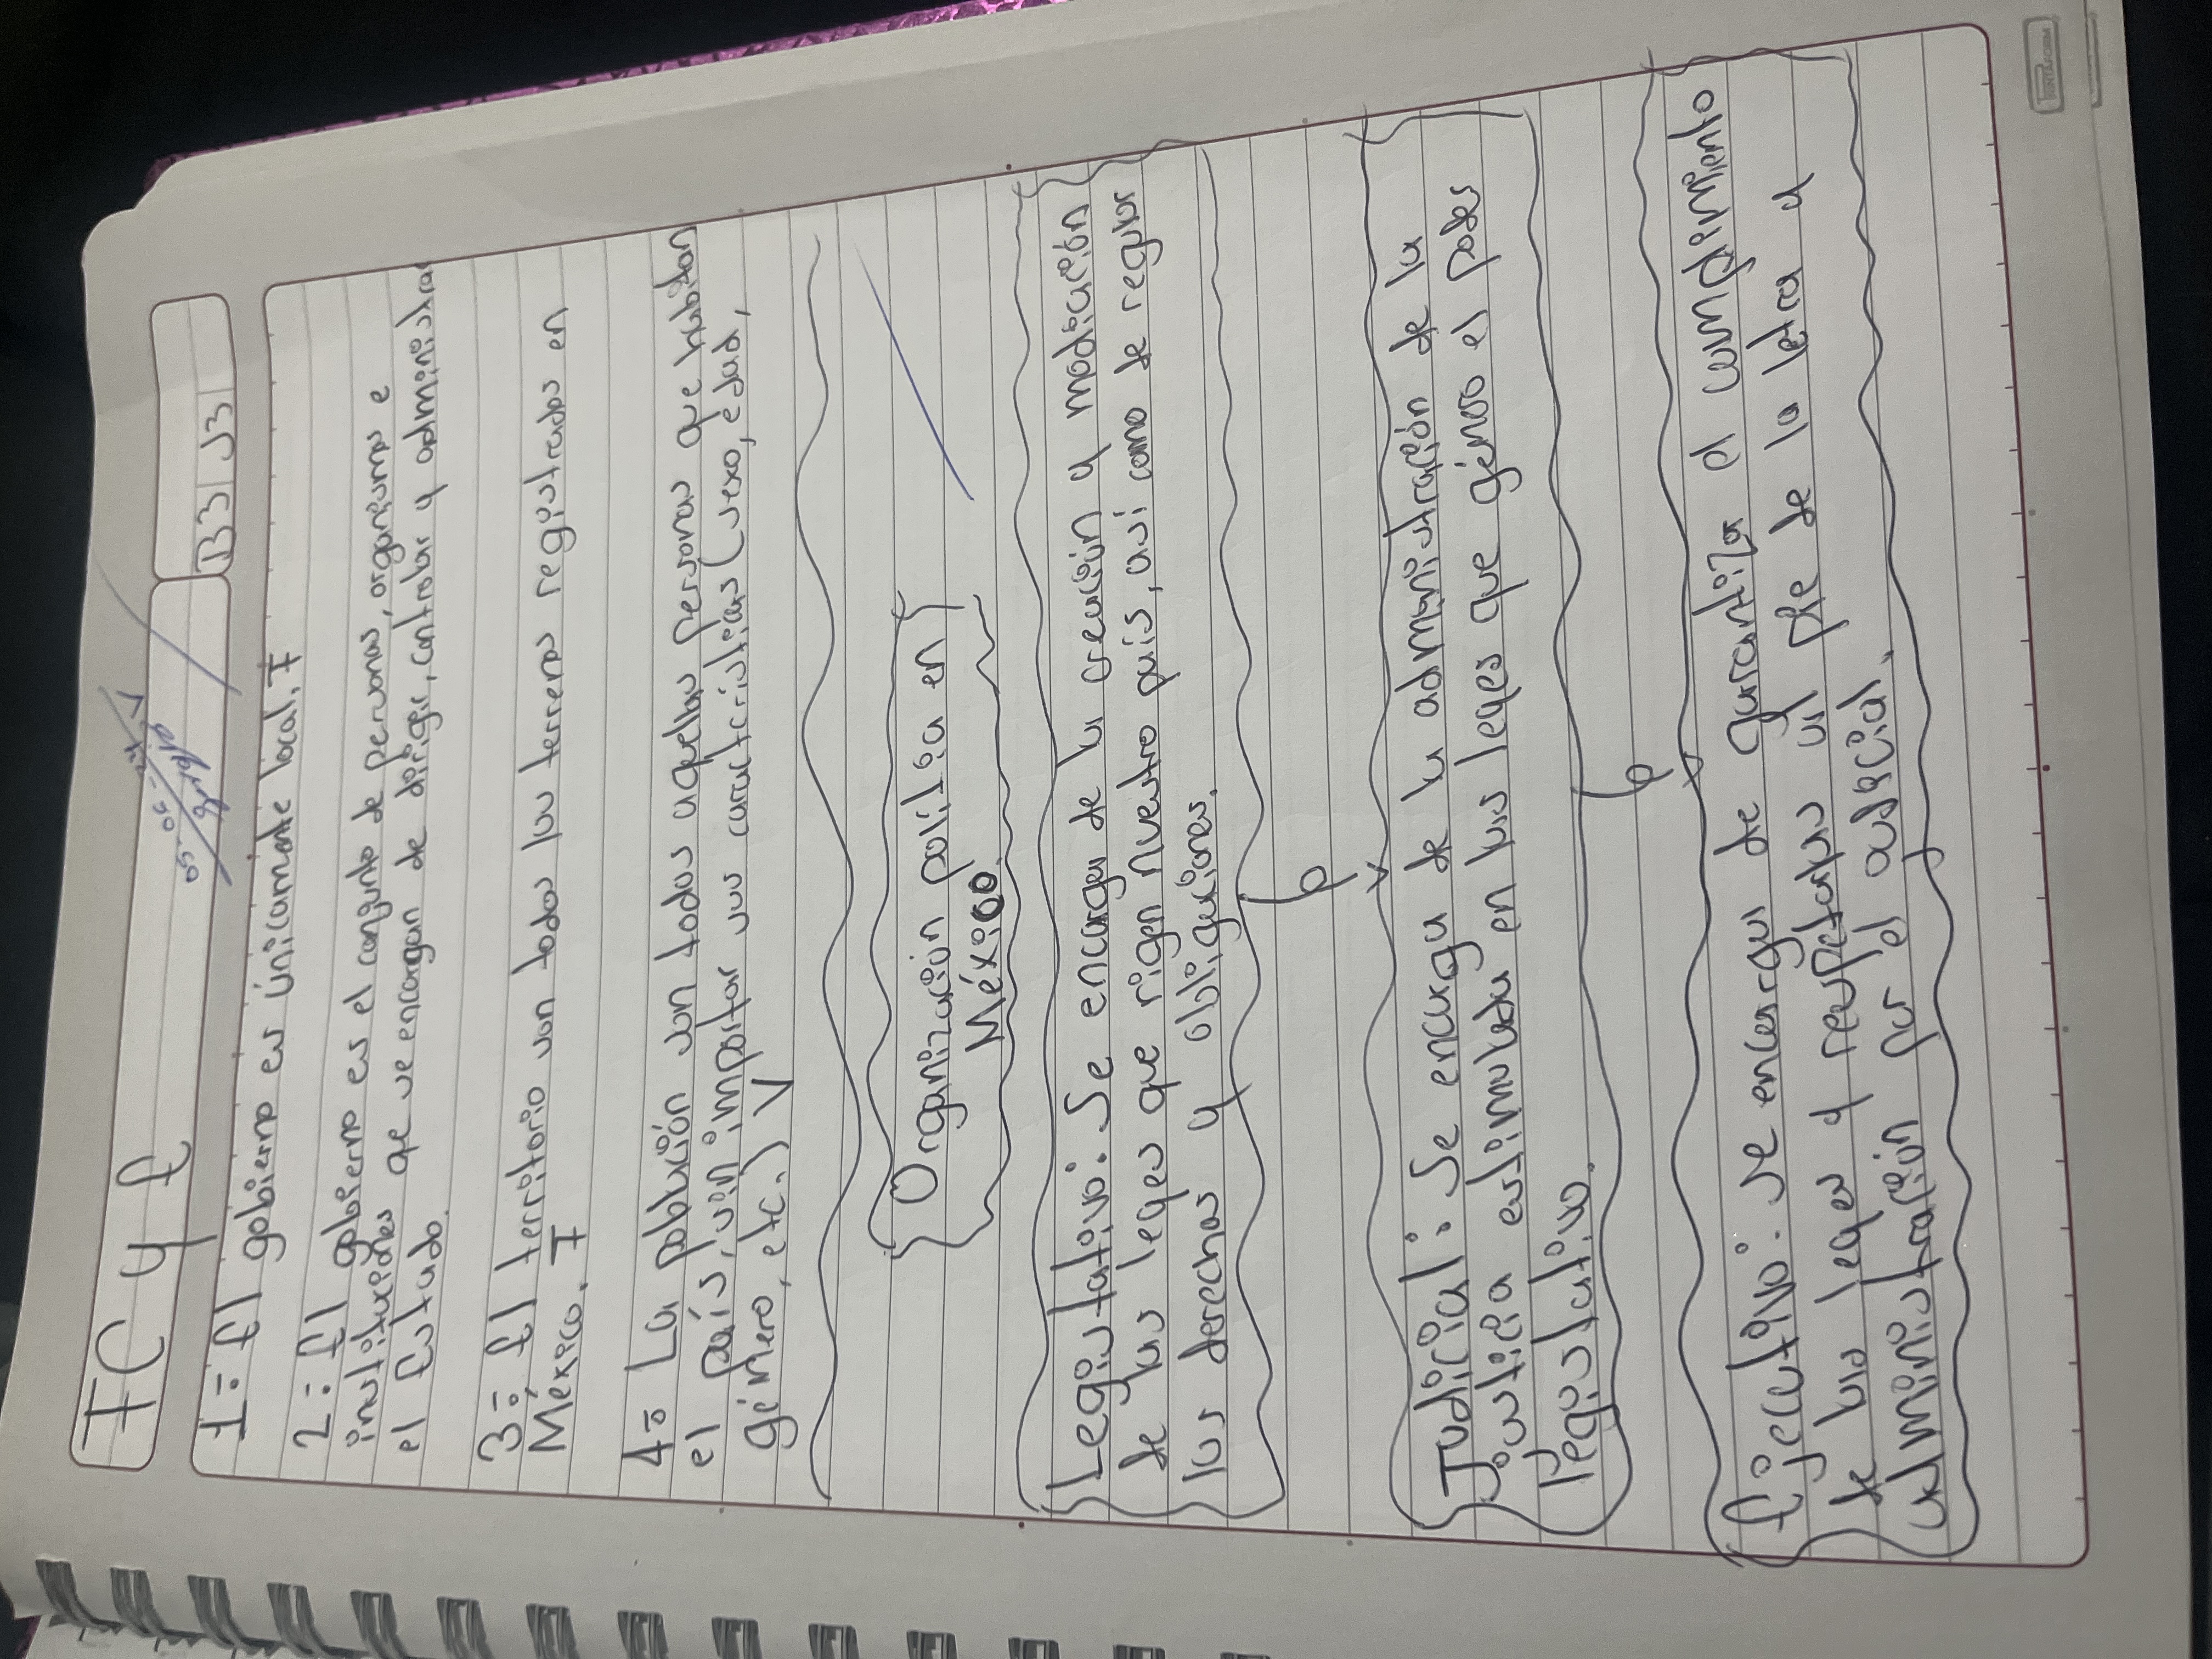 FC y E
B3 J3
1= El gobierno es únicamente local. F
2= El gobierno es el conjunto de personas, organismos e
instituciones que se encargan de dirigir, controlar y administrar
el Estado.
3= El territorio son todos los terrenos registrados en
México. F
4= La población son todas aquellas personas que habitan
el país, sin importar sus características (sexo, edad,
género, etc.) V
Organización política en
México
Legislativo: Se encarga de la creación y modicación
de las leyes que rigen nuestro país, así como de regular
los derechos y obligaciones.
Judicial: Se encarga de la administración de la
justicia estimulada en las leyes que género el poder
legislativo.
Ejecutivo: se encarga de garantizar el cumplimiento
de las leyes y respetarlas al pie de la letra y
administración por el